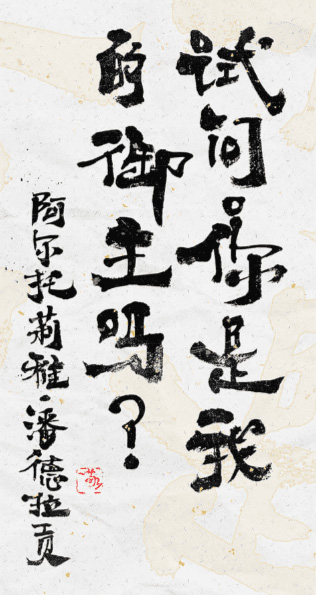 试问。你是我
的御主吗？
阿尔托莉雅·潘德拉贡